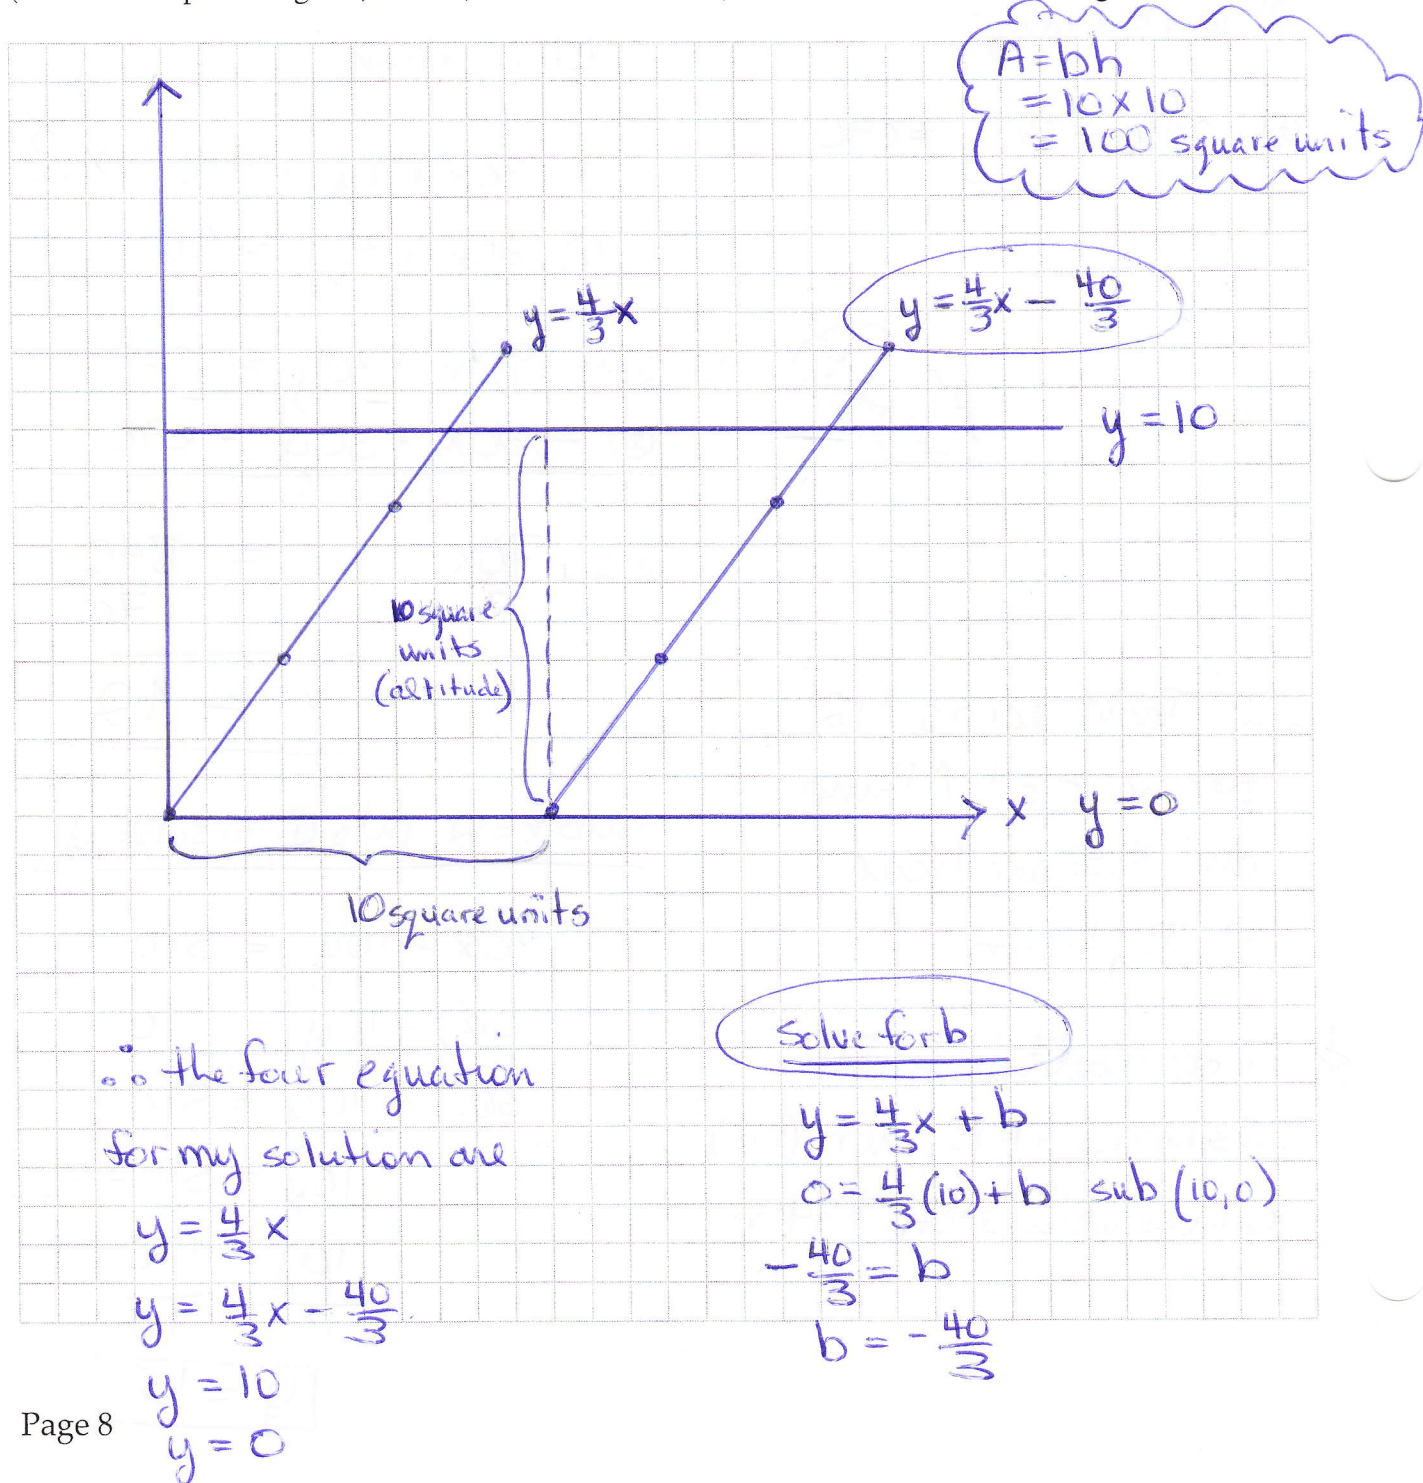 A=bh
=10×10
= 100 square units
y=4/3x
y=4/3x - 40/3
y=10
10 square
units
(altitude)
x y=0
10 square units
∴ the four equation
for my solution are
y=4/3x
y=4/3x-40/3
y=10
y=0
Solve for b
y=4/3x+b
0=4/3(10)+b sub (10,0)
-40/3=b
b=-40/3
Page 8